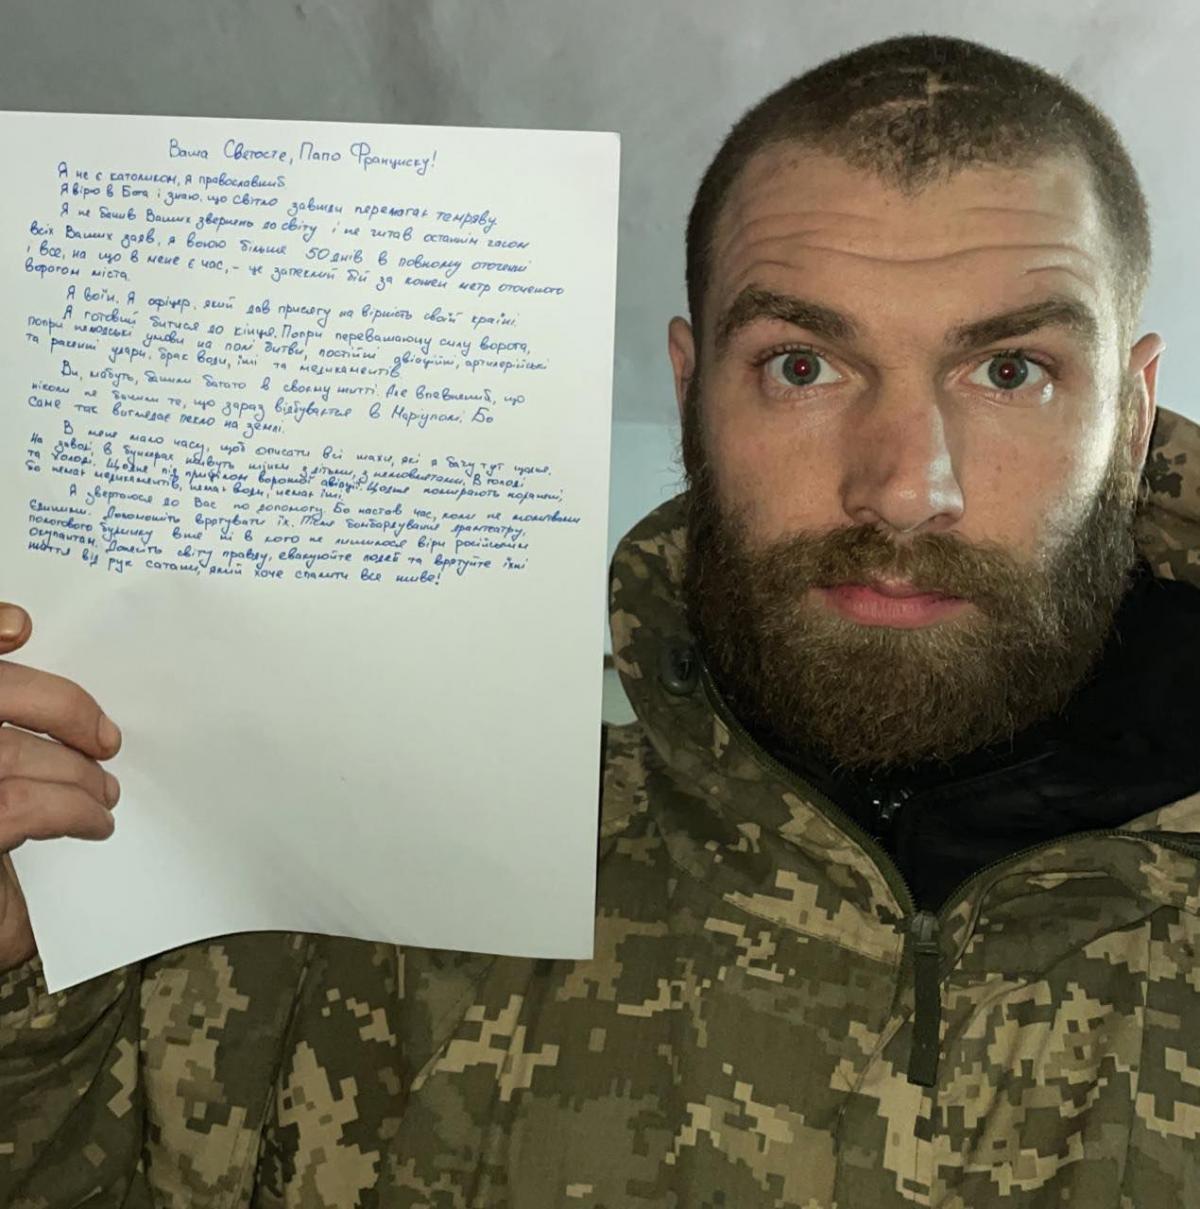 Ваша Святосте, Папо Франциску!
Я не є католиком, я православний
Я вірю в Бога і знаю, що світло завжди перемагає темряву
Я не бачив Ваших звернень до світу і не читав останнім часом
всіх Ваших заяв, я воюю більше 50 днів в повному оточенні
і все, на що в мене є час, – це запеклий бій за кожен метр оточеного
ворогом міста.
Я воїн. Я офіцер, який дав присягу на вірність своїй країні.
Я готовий битися до кінця. Попри переважаючу силу ворога,
попри нелюдські умови на полі битви, постійні авіаційні, артилерійські
та ракетні удари, брак води, їжі та медикаментів.
Ви, мабуть, бачили багато в своєму житті. Але впевнений, що
ніколи не бачили те, що зараз відбувається в Маріуполі. Бо
саме так виглядає пекло на землі.
В мене мало часу, щоб описати всі жахи, які я бачу тут щодня.
На заводі в бункерах живуть жінки з дітьми, з немовлятами. В голоді
та холоді. Щодня під прицілом ворожої авіації. Щодня помирають поранені,
бо немає медикаментів, немає води, немає їжі.
Я звертаюся до Вас по допомогу. Бо настав час, коли не молитвами
єдиними. Допоможіть врятувати їх. Після бомбардування драмтеатру,
пологового будинку вже ні в кого не лишилося віри російським
окупантам. Донесіть світу правду, евакуюйте людей та врятуйте їхні
життя від рук сатани, який хоче спалити все живе!